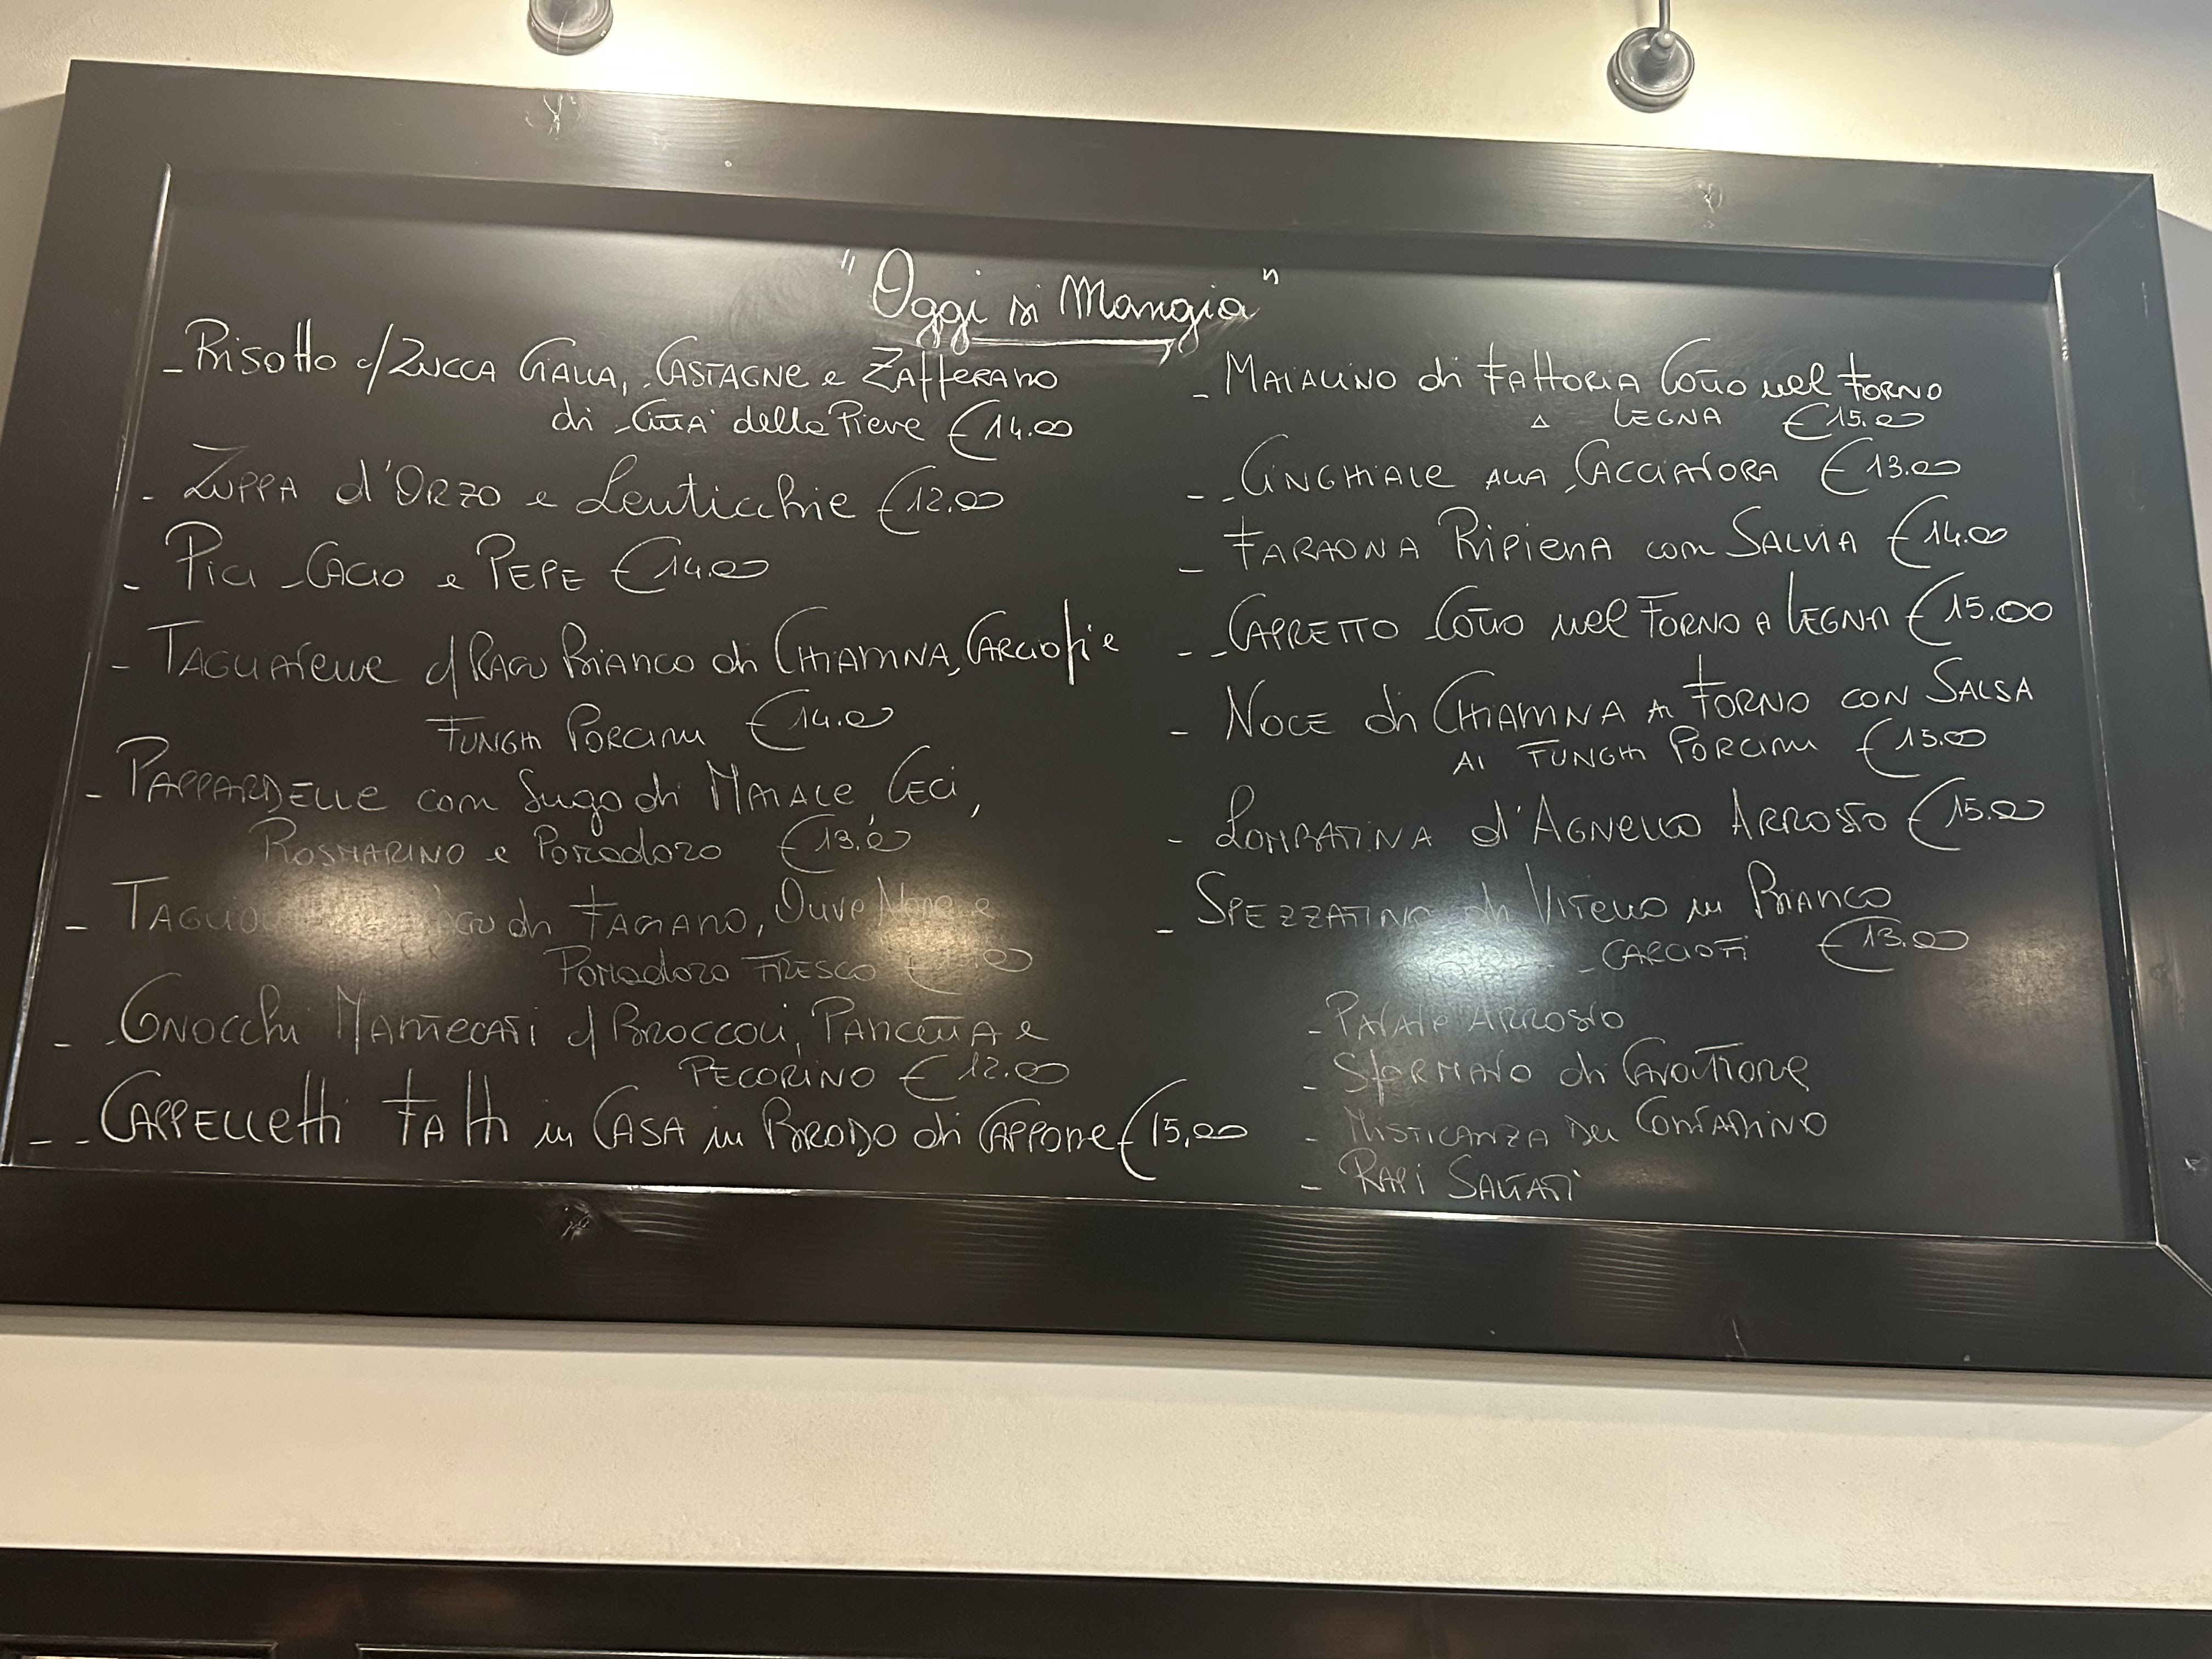 "Oggi si Mangia"
- Risotto c/Zucca Gialla, Castagne e Zafferano
di Città della Pieve €14.00
- Zuppa d'Orzo e Lenticchie €12.00
- Pici Cacio e Pepe €14.00
- Tagliatelle c/Ragù Bianco di Chianina, Carciofi e
Funghi Porcini €14.00
- Pappardelle con Sugo di Maiale, Ceci,
Rosmarino e Pomodoro €13.00
- di Fagiano, Olive Nere e
Pomodoro Fresco
- Gnocchi Mantecati c/Broccoli, Pancetta e
Pecorino €12.00
- Cappelletti Fatti in Casa in Brodo di Cappone €15,00
- Maialino di Fattoria Cotto nel Forno
a Legna €15.00
- Cinghiale alla Cacciatora €13.00
- Faraona Ripiena con Salvia €14.00
- Capretto Cotto nel Forno a Legna €15.00
- Noce di Chianina al Forno con Salsa
ai Funghi Porcini €15.00
- Lombatina d'Agnello Arrosto €15.00
- Spezzatino di Vitello in Bianco
Carciofi €13.00
- Patate Arrosto
- Sformato di Cavolfiore
- Misticanza del Contadino
- Rapi Saltati